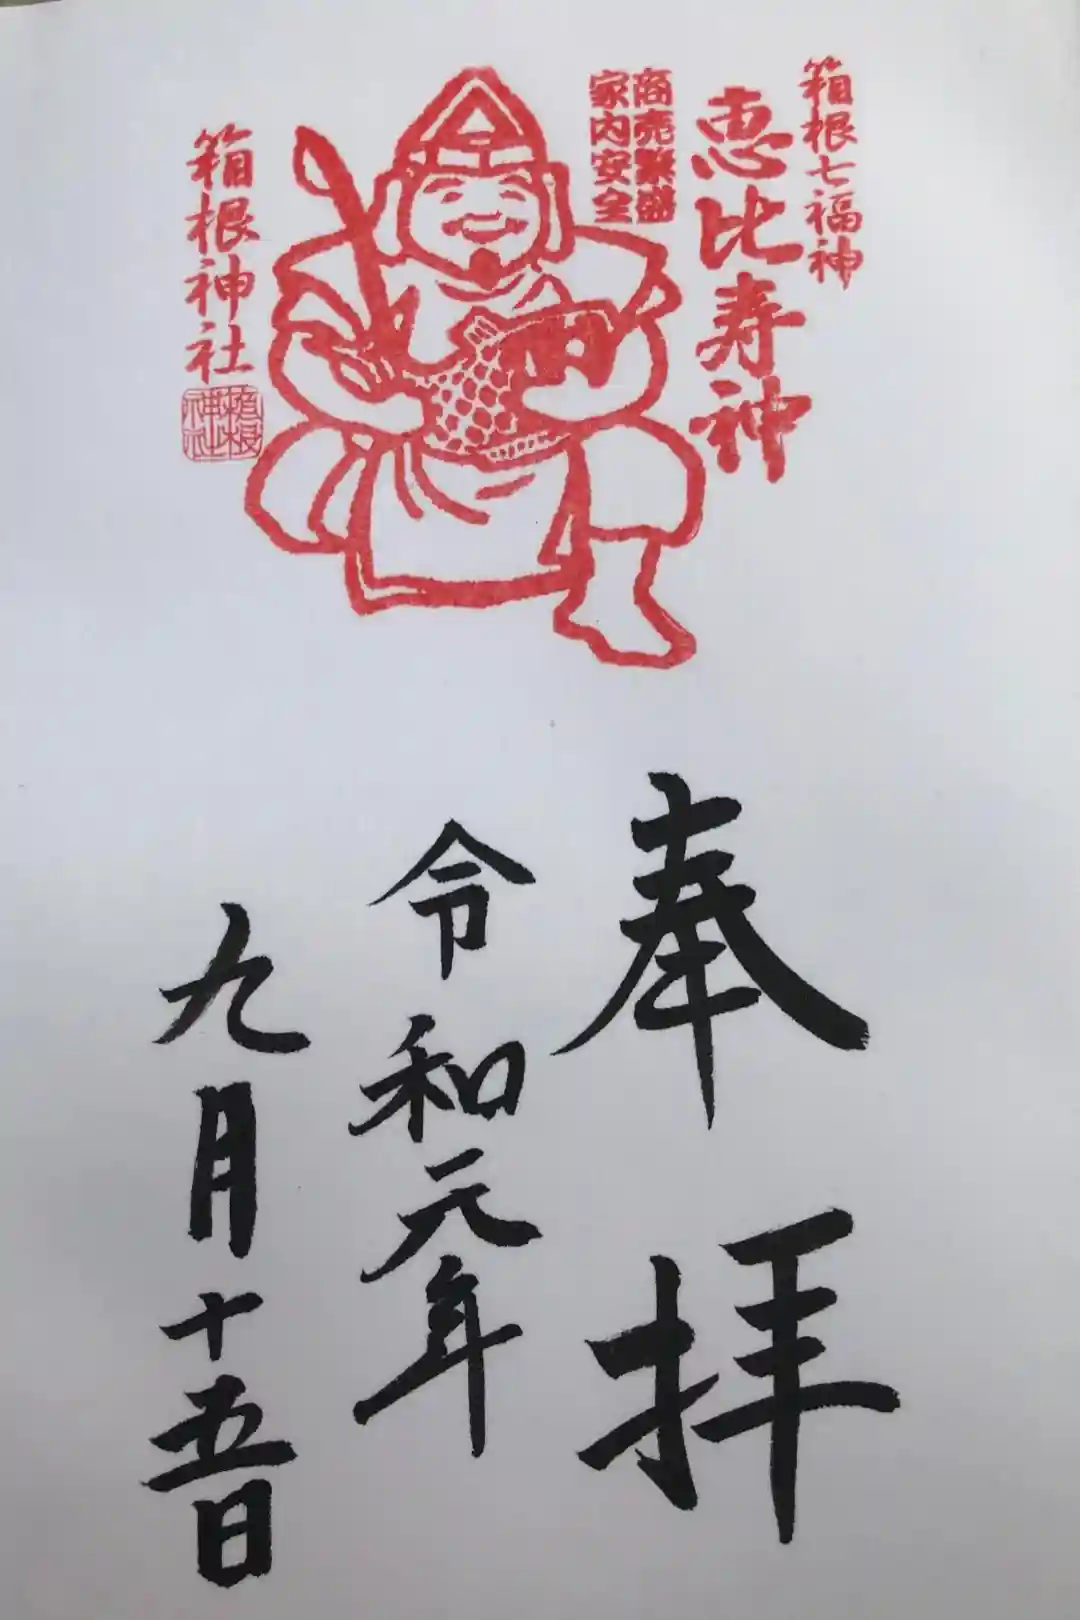 箱根七福神
恵比寿神
商売繁盛
家内安全
箱根神社
箱根
神社
奉拝
令和元年
九月十五日